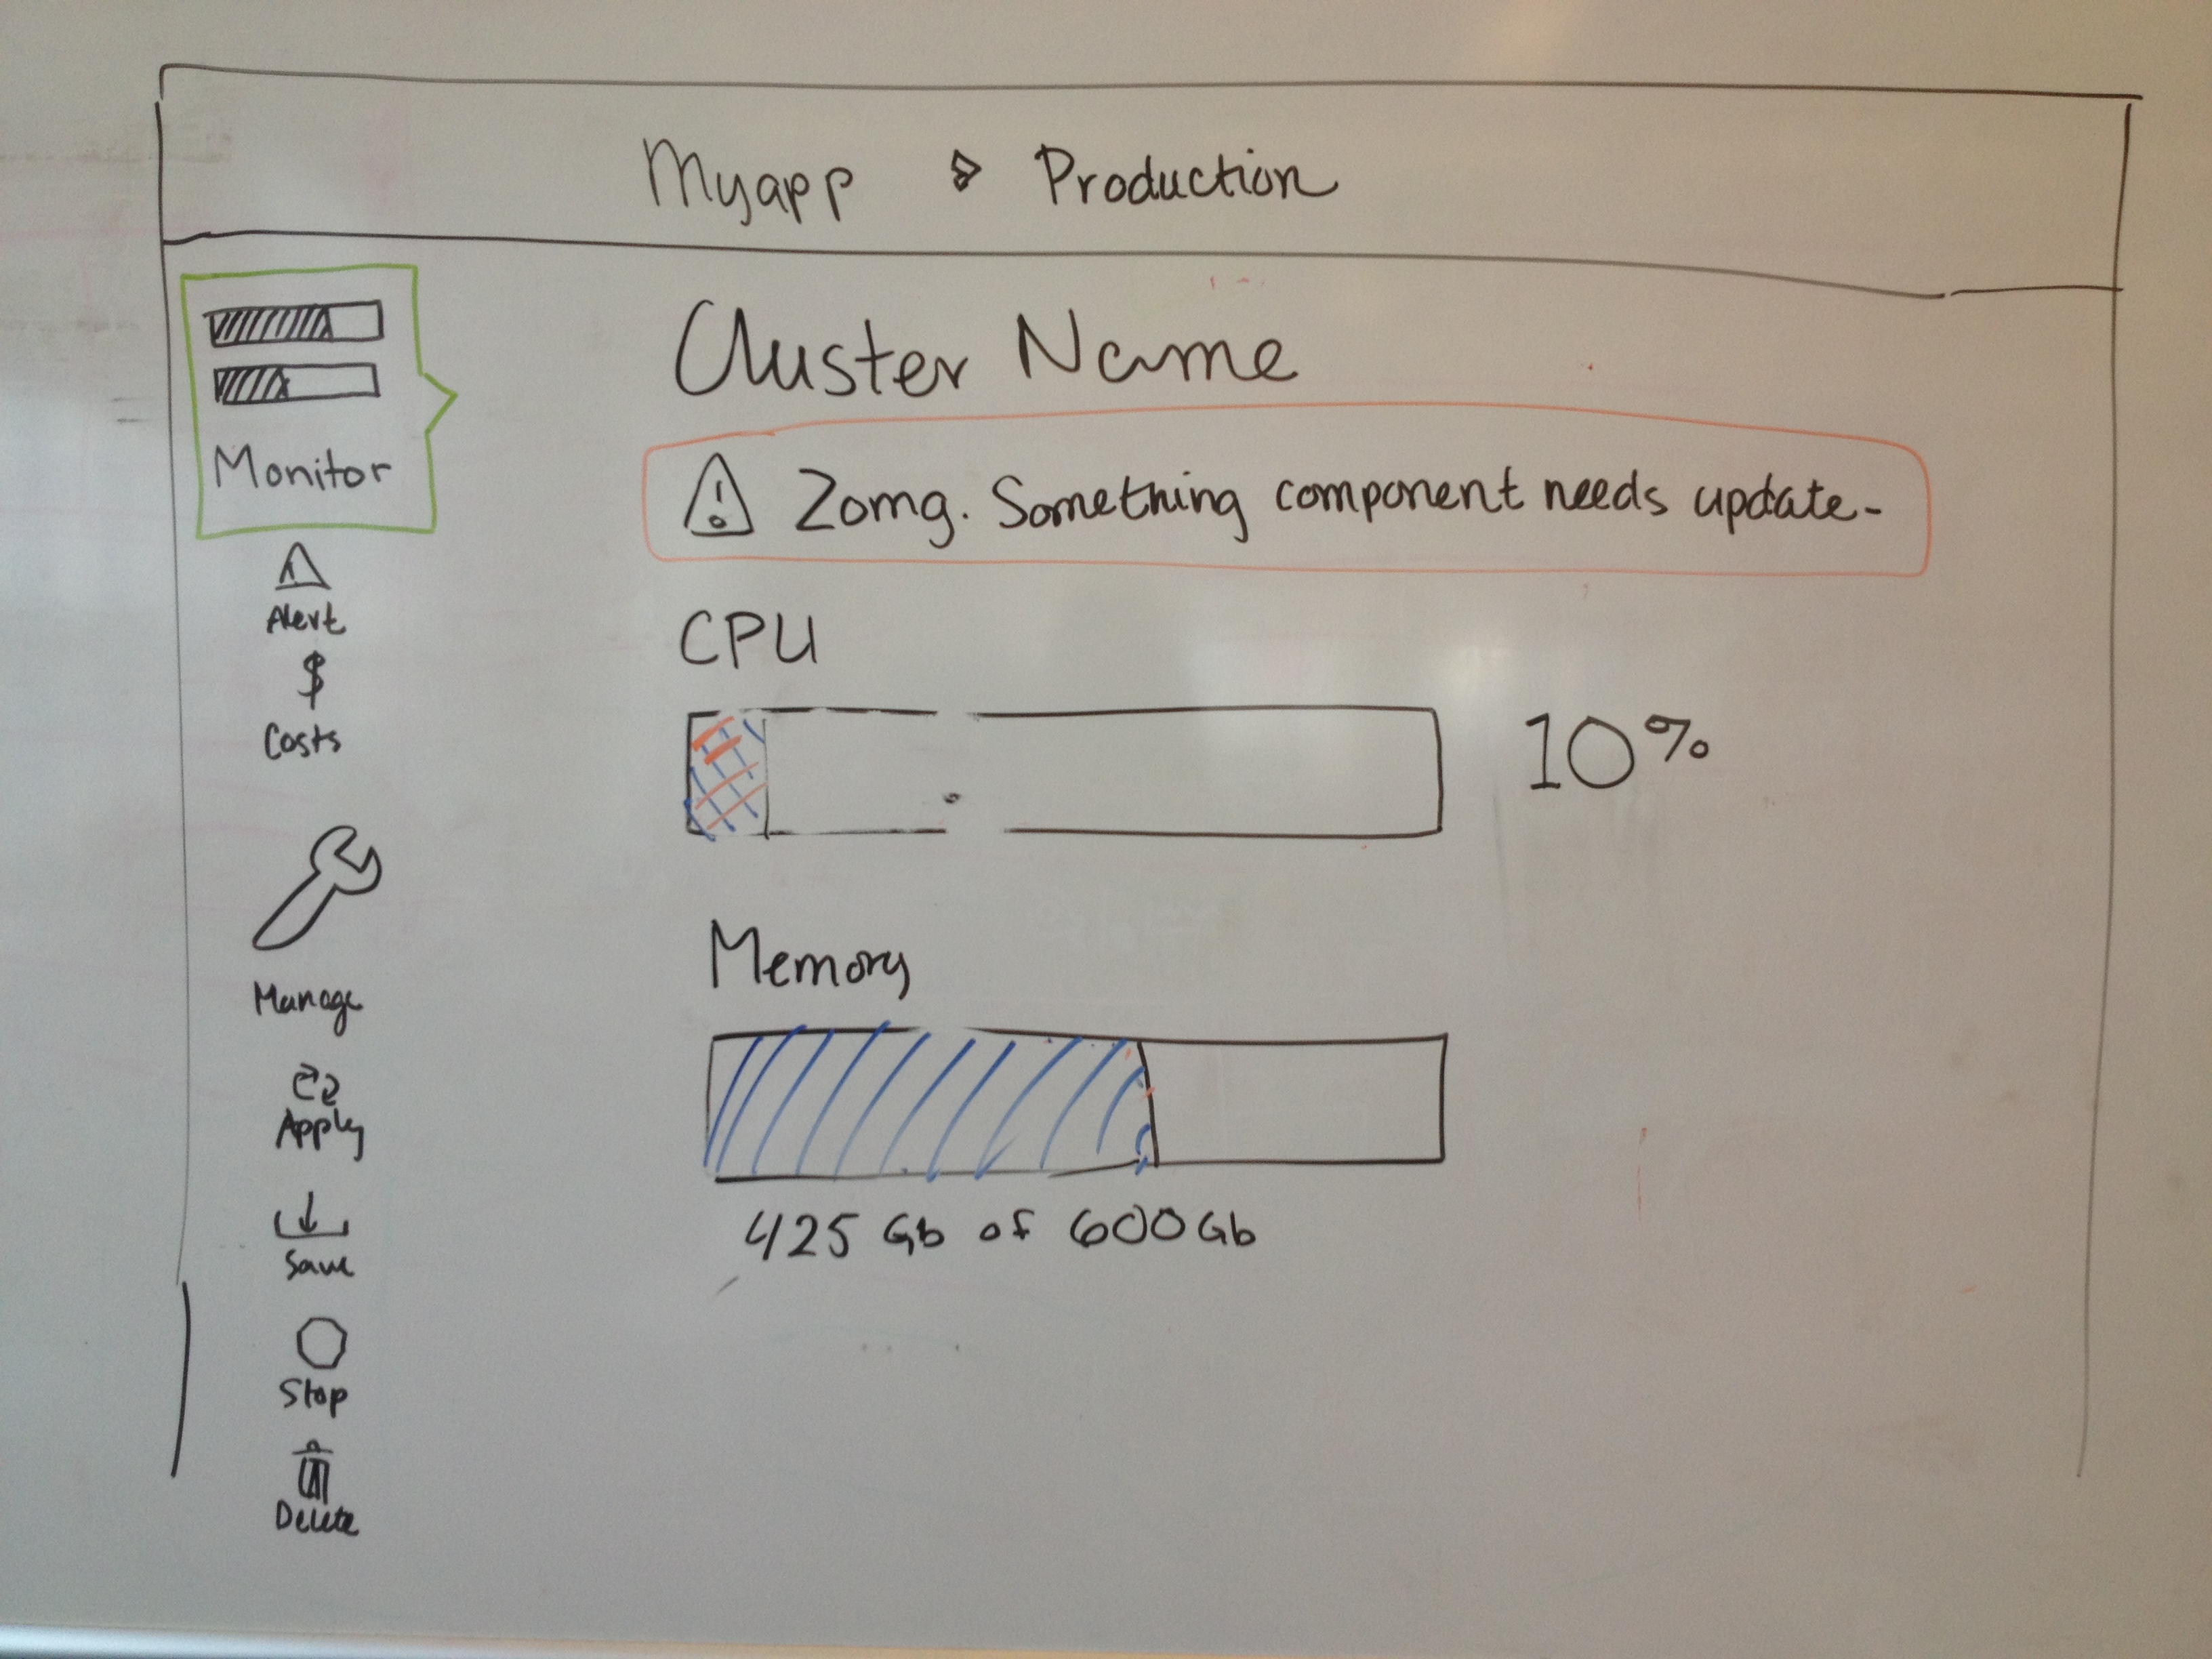 Myapp Production
Monitor
Alert
$
Costs
Manage
Apply
Save
Stop
Delete
Cluster Name
! Zomg. Something component needs update-
CPU
10%
Memory
425 Gb of 600Gb